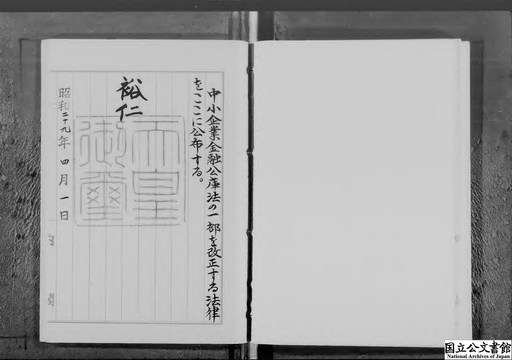 中小企業金融公庫法の一部を改正する法律
をここに公布する。
裕仁
天皇
御璽
昭和二十九年四月一日
国立公文書館
National Archives of Japan